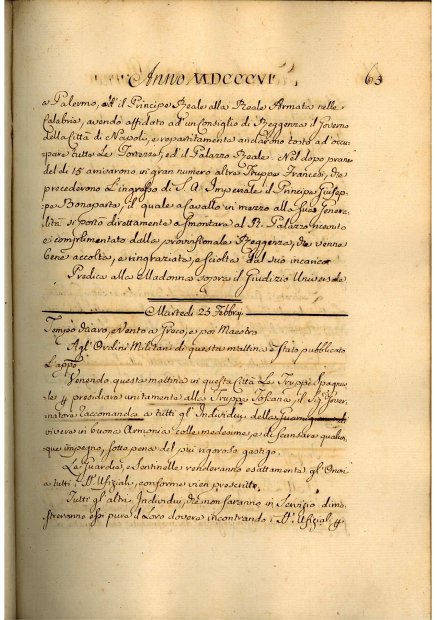 Anno MDCCCVI 63
a Palermo, ed il Principe Reale alla Reale Armata nelle
Calabrie, avendo affidato ad un Consiglio di Reggenza il Governo
della Città di Napoli, e repartitamente andarono tosto ad occu
pare tutte Le Fortezze, ed il Palazzo Reale. Nel dopo pran
del di 15 arrivarono in gran numero altre Truppe Francesi, che
precederono L'ingresso di S. A Imperiale il Principe Giusep
pe Bonaparte, il quale a Cavallo in mezzo alla sua Genera
lità si portò direttamente a smontare al R. Palazzo
e complimentato dalla provvisionale Reggenza, che venne
bene accolta, e ringraziata, e sciolta dal suo incarico
Predica alla Madonna sopra il Giudizio Universale
Martedì 25 Febbrij
Tempo chiaro, e Vento a Greco, e poi Maestro
Agl' Ordini Militari di questa mattina è stato pubblicato
L'appº
Venendo questa mattina in questa Città Le Truppe Spagnuo
le p presidiare unitamente alla Truppa Toscana il Sig Gover
natore raccomanda a tutti gl' Individui della Guarnigione di
vivere in buona Armonia colle medesime, e di scansare qualun
que impegno, sotto pena del più rigoroso gastigo.
Le Guardie, e Sentinelle renderanno esattamente gl' Onori
a tutti i SS. Ufiziali, conforme vien prescritto.
Tutti gl' altri Individui, che non saranno in Servizio dimo
streranno essi pure il Loro dovere incontrando i SS. Ufiziali p